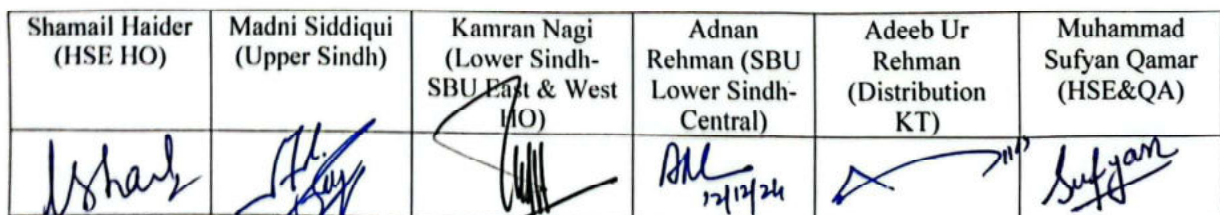 Shamail Haider
(HSE HO)
Madni Siddiqui
(Upper Sindh)
Kamran Nagi
(Lower Sindh-
SBU East & West
HO)
Adnan
Rehman (SBU
Lower Sindh-
Central)
Adeeb Ur
Rehman
(Distribution
KT)
Muhammad
Sufyan Qamar
(HSE&QA)
12/12/24
Sufyan